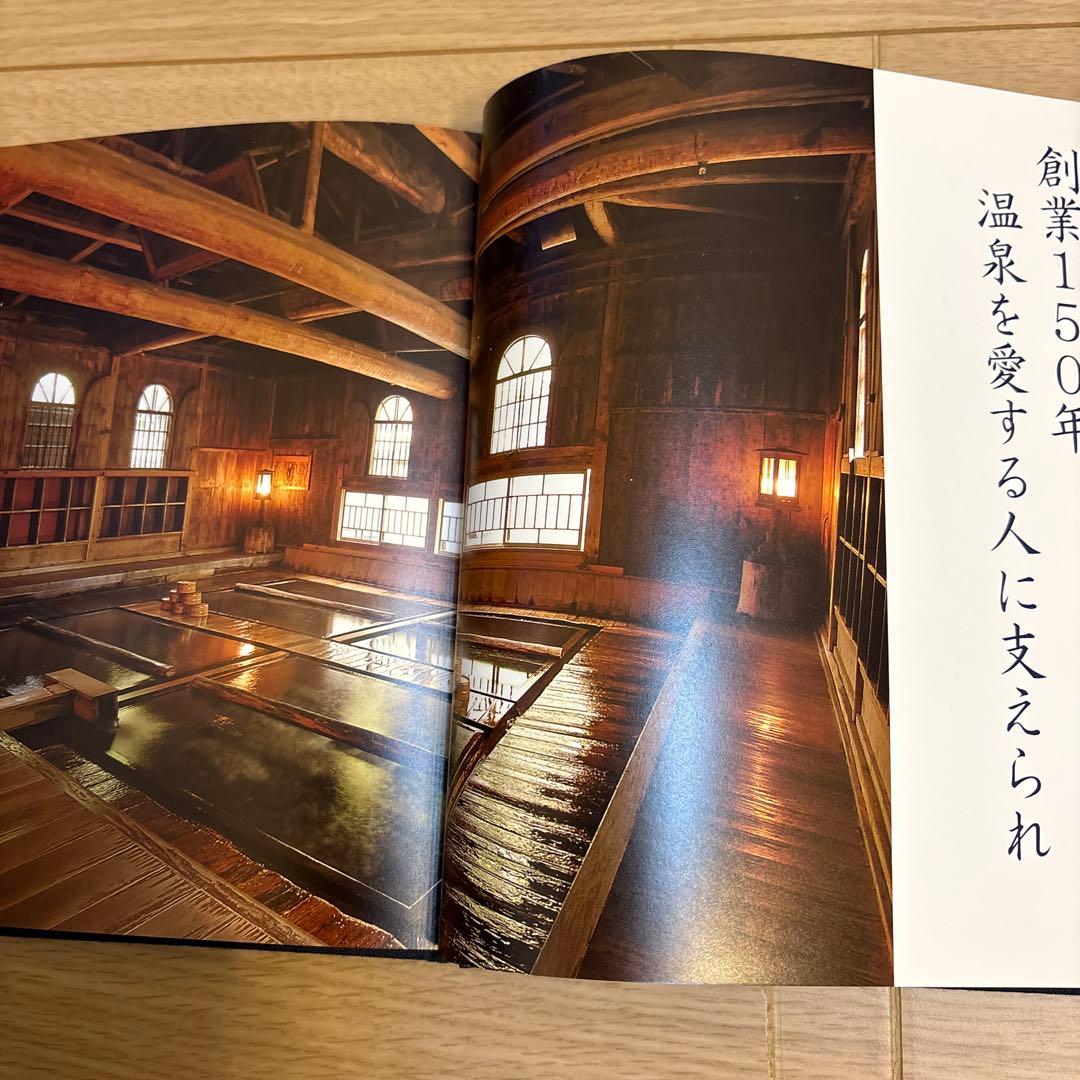 創業150年
温泉を愛する人に支えられ